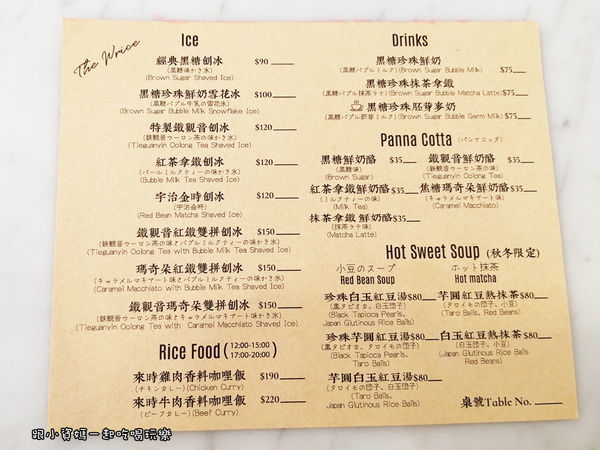 The Wrice
Ice
經典黑糖刨冰 $90
(黒糖味かき氷)
(Brown Sugar Shaved Ice)
黑糖珍珠鮮奶雪花冰 $100
(黒糖バブル牛乳の雪花氷)
(Brown Sugar Bubble Milk Snowflake Ice)
特製鐵觀音刨冰 $120
(鉄観音ウーロン茶の味かき氷)
(Tieguanyin Oolong Tea Shaved Ice)
紅茶拿鐵刨冰 $120
(パールミルクティーの味かき氷)
(Bubble Milk Tea Shaved Ice)
宇治金時刨冰 $120
(宇治金時)
(Red Bean Matcha Shaved Ice)
鐵觀音紅鐵雙拼刨冰 $150
(鉄観音ウーロン茶の味とバブルミルクティーの味かき氷)
(Tieguanyin Oolong Tea with Bubble Milk Tea Shaved Ice)
瑪奇朵紅鐵雙拼刨冰 $150
(キャラメルマキアート味とバブルミルクティーの味かき氷)
(Caramel Macchiato with Bubble Milk Tea Shaved Ice)
鐵觀音瑪奇朵雙拼刨冰 $150
(鉄観音ウーロン茶の味とキャラメルマキアート味かき氷)
(Tieguanyin Oolong Tea with Caramel Macchiato Shaved Ice)
Rice Food (12:00-15:00)
(17:00-20:00)
來時雞肉香料咖哩飯 $190
(チキンカレー)(Chicken Curry)
來時牛肉香料咖哩飯 $220
(ビーフカレー)(Beef Curry)
Drinks
黑糖珍珠鮮奶
(黒糖バブルミルク)(Brown Sugar Bubble Milk) $75
黑糖珍珠抹茶拿鐵
(黒糖バブル抹茶ラテ)(Brown Sugar Bubble Matcha Latte) $75
黑糖珍珠胚芽麥奶
(黒糖バブル胚芽ミルク)(Brown Sugar Bubble Germ Milk) $75
Panna Cotta (パンナコッタ)
黑糖鮮奶酪 $35 鐵觀音鮮奶酪 $35
(黒糖味) (鉄観音味)
(Brown Sugar) (Tieguanyin Oolong Tea)
紅茶拿鐵鮮奶酪 $35 焦糖瑪奇朵鮮奶酪 $35
(ミルクティーの味) (キャラメルマキアート味)
(Milk Tea) (Caramel Macchiato)
抹茶拿鐵 鮮奶酪 $35
(抹茶ラテ味)
(Matcha Latte)
Hot Sweet Soup (秋冬限定)
小豆のスープ ホット抹茶
Red Bean Soup Hot matcha
珍珠白玉紅豆湯 $80 芋圓紅豆熱抹茶 $80
(黒タピオカ、白玉団子) (タロイモの団子、小豆)
(Black Tapioca Pearls, (Taro Balls, Red Beans)
Japan Glutinous Rice Balls)
珍珠芋圓紅豆湯 $80 白玉紅豆熱抹茶 $80
(黒タピオカ、タロイモの団子) (白玉団子、小豆)
(Black Tapioca Pearls, (Japan Glutinous Rice Balls
Taro Balls) Red Beans)
芋圓白玉紅豆湯 $80
(タロイモの団子、白玉団子)
(Taro Balls,
Japan Glutinous Rice Balls)
桌號Table No.
跟小資媽一起吃喝玩樂